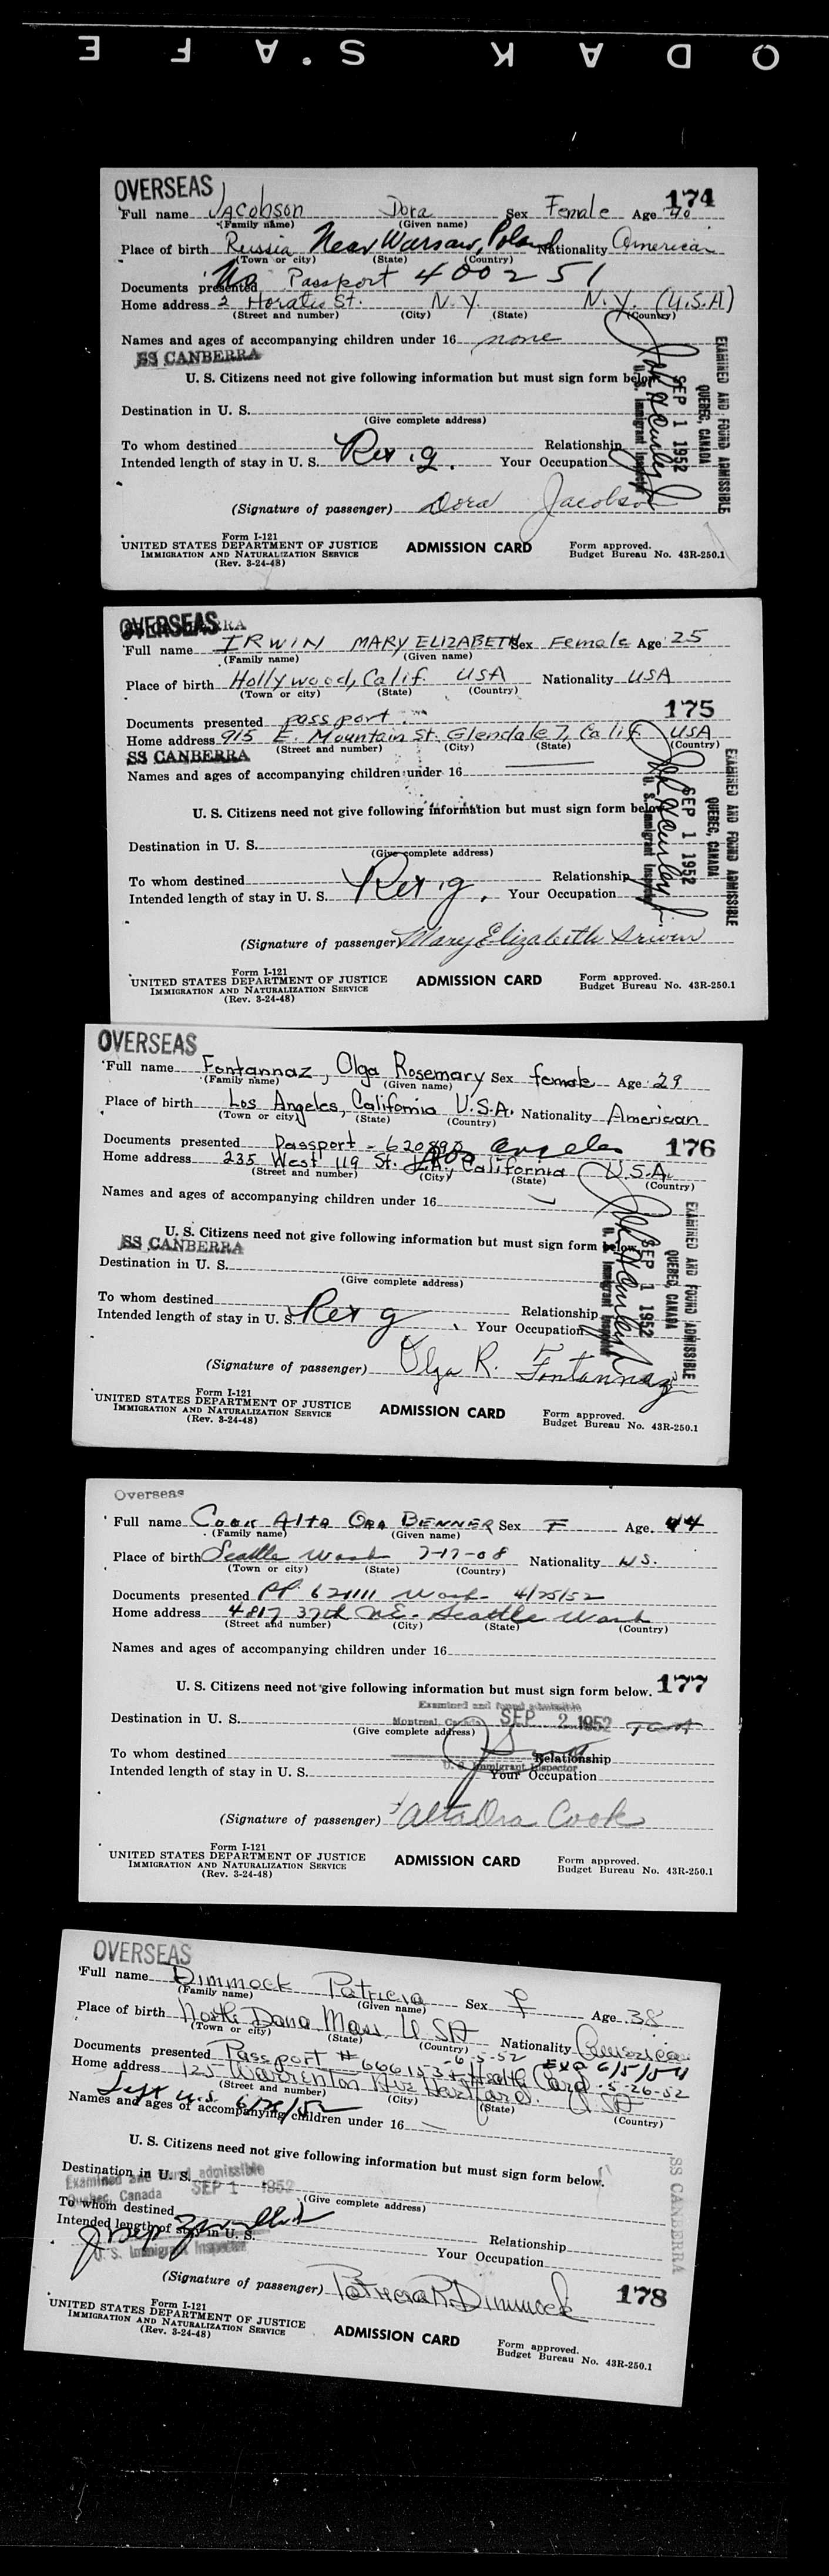 ODAK S.AFE
OVERSEAS 174
Full name Jacobson Dora Sex Female Age 40
(Family name) (Given name)
Place of birth Russia Near Warsaw, Poland Nationality American
(Town or city) (State) (Country)
Documents presented Passport 400251
Home address 2 Horatio St. N.Y. N.Y. (U.S.A)
(Street and number) (City) (State) (Country)
Names and ages of accompanying children under 16 none
SS CANBERRA
U. S. Citizens need not give following information but must sign form below.
Destination in U. S.
(Give complete address)
To whom destined Relationship
Intended length of stay in U. S. Your Occupation
EXAMINED AND FOUND ADMISSIBLE
QUEBEC, CANADA
SEP 1 1952
U. S. Immigrant Inspector
(Signature of passenger) Dora Jacobson
Form I-121
UNITED STATES DEPARTMENT OF JUSTICE ADMISSION CARD Form approved.
IMMIGRATION AND NATURALIZATION SERVICE Budget Bureau No. 43R-250.1
(Rev. 3-24-48)
OVERSEAS
Full name IRWIN MARY ELIZABETH Sex Female Age 25
(Family name) (Given name)
Place of birth Hollywood, Calif. USA Nationality USA
(Town or city) (State) (Country)
175
Documents presented passport
Home address 915 E. Mountain St. Glendale 7, Calif. USA
(Street and number) (City) (State) (Country)
SS CANBERRA
Names and ages of accompanying children under 16
U. S. Citizens need not give following information but must sign form below.
Destination in U. S.
(Give complete address)
To whom destined Relationship
Intended length of stay in U. S. Your Occupation
EXAMINED AND FOUND ADMISSIBLE
QUEBEC, CANADA
SEP 1 1952
U. S. Immigrant Inspector
(Signature of passenger) Mary Elizabeth Irwin
Form I-121
UNITED STATES DEPARTMENT OF JUSTICE ADMISSION CARD Form approved.
IMMIGRATION AND NATURALIZATION SERVICE Budget Bureau No. 43R-250.1
(Rev. 3-24-48)
OVERSEAS
Full name Fontannaz, Olga Rosemary Sex female Age 29
(Family name) (Given name)
Place of birth Los Angeles, California U.S.A. Nationality American
(Town or city) (State) (Country)
Documents presented Passport - Los Angeles 176
Home address 235 West 119 St. L.A., California U.S.A.
(Street and number) (City) (State) (Country)
Names and ages of accompanying children under 16
U. S. Citizens need not give following information but must sign form below.
SS CANBERRA
Destination in U. S.
(Give complete address)
To whom destined Relationship
Intended length of stay in U. S. Your Occupation
EXAMINED AND FOUND ADMISSIBLE
QUEBEC, CANADA
SEP 1 1952
U. S. Immigrant Inspector
(Signature of passenger) Olga R. Fontannaz
Form I-121
UNITED STATES DEPARTMENT OF JUSTICE ADMISSION CARD Form approved.
IMMIGRATION AND NATURALIZATION SERVICE Budget Bureau No. 43R-250.1
(Rev. 3-24-48)
Overseas
Full name Cook Alta Ora BENNER Sex F Age. 44
(Family name) (Given name)
Place of birth Seattle Wash 7-17-08 Nationality U.S.
(Town or city) (State) (Country)
Documents presented PP. 621111 Wash- 4/25/52
Home address 4817 37th N.E. Seattle Wash
(Street and number) (City) (State) (Country)
Names and ages of accompanying children under 16
U. S. Citizens need not give following information but must sign form below. 177
Examined and found admissible
Destination in U. S. Montreal, Canada SEP 2 1952
(Give complete address)
To whom destined Relationship
U. S. Immigrant Inspector
Intended length of stay in U. S. Your Occupation
(Signature of passenger) Alta Ora Cook
Form I-121
UNITED STATES DEPARTMENT OF JUSTICE ADMISSION CARD Form approved.
IMMIGRATION AND NATURALIZATION SERVICE Budget Bureau No. 43R-250.1
(Rev. 3-24-48)
OVERSEAS
Full name Dimmock Patricia Sex F Age 38
(Family name) (Given name)
Place of birth North Dana Mass USA Nationality American
(Town or city) (State) (Country)
-6-5-52 Exp 6/5/54
Documents presented Passport # 666153 + Health Card -5-26-52
Home address 125 Warrenton Ave Hartford. USA
(Street and number) (City) (State) (Country)
Left U.S. 6/26/52
Names and ages of accompanying children under 16
U. S. Citizens need not give following information but must sign form below.
Destination in U. S.
Examined and found admissible
Quebec, Canada SEP 1 1952
(Give complete address)
To whom destined Relationship
Intended length of stay in U. S. Your Occupation
U. S. Immigrant Inspector
SS CANBERRA
(Signature of passenger) Patricia R. Dimmock 178
Form I-121
UNITED STATES DEPARTMENT OF JUSTICE ADMISSION CARD Form approved.
IMMIGRATION AND NATURALIZATION SERVICE Budget Bureau No. 43R-250.1
(Rev. 3-24-48)